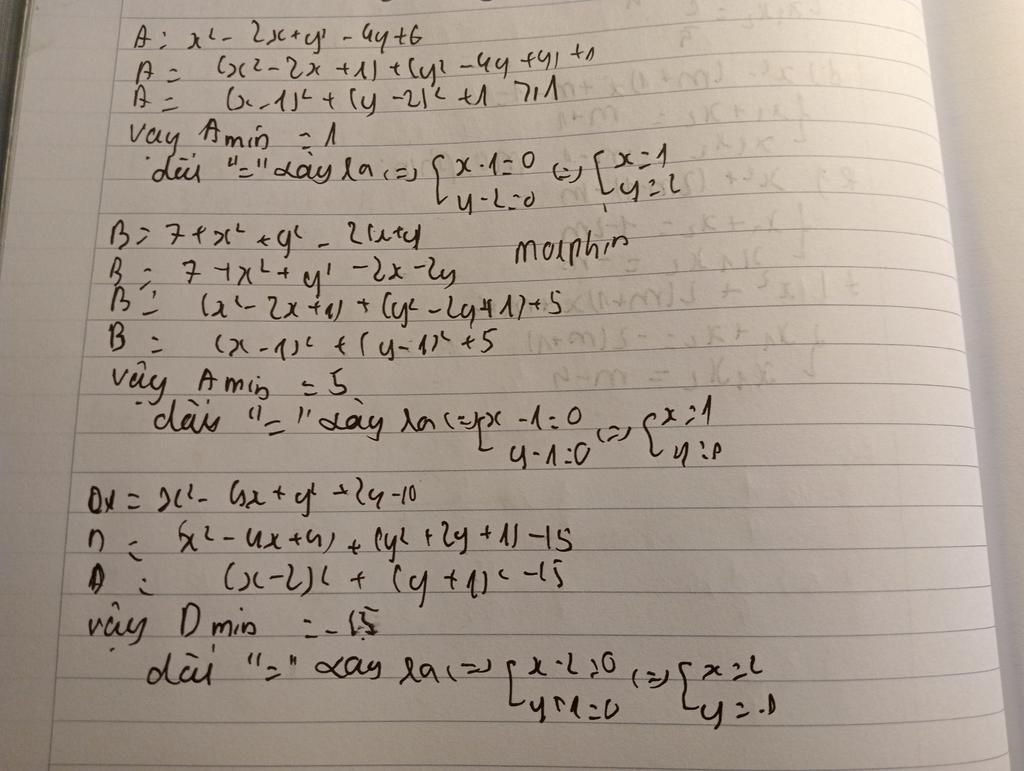 A = x² - 2x + y² - 4y + 6
A = (x² - 2x + 1) + (y² - 4y + 4) + 1
A = (x - 1)² + (y - 2)² + 1 ≥ 1
vậy A min = 1
dấu "=" xảy ra <=> { x - 1 = 0 y - 2 = 0 <=> { x = 1 y = 2
B = 7 + x² + y² - 2(x+y)
morphin
B = 7 + x² + y² - 2x - 2y
B = (x² - 2x + 1) + (y² - 2y + 1) + 5
B = (x - 1)² + (y - 1)² + 5
vậy A min = 5
dấu "=" xảy ra <=> { x - 1 = 0 y - 1 = 0 <=> { x = 1 y = 1
= x² - 4x + y² + 2y - 10
D = (x² - 4x + 4) + (y² + 2y + 1) - 15
D = (x - 2)² + (y + 1)² - 15
vậy D min = -15
dấu "=" xảy ra <=> { x - 2 = 0 y + 1 = 0 <=> { x = 2 y = -1